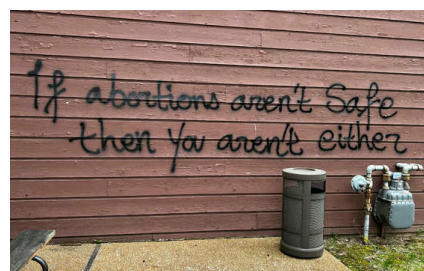 If abortions aren't Safe
then You aren't either